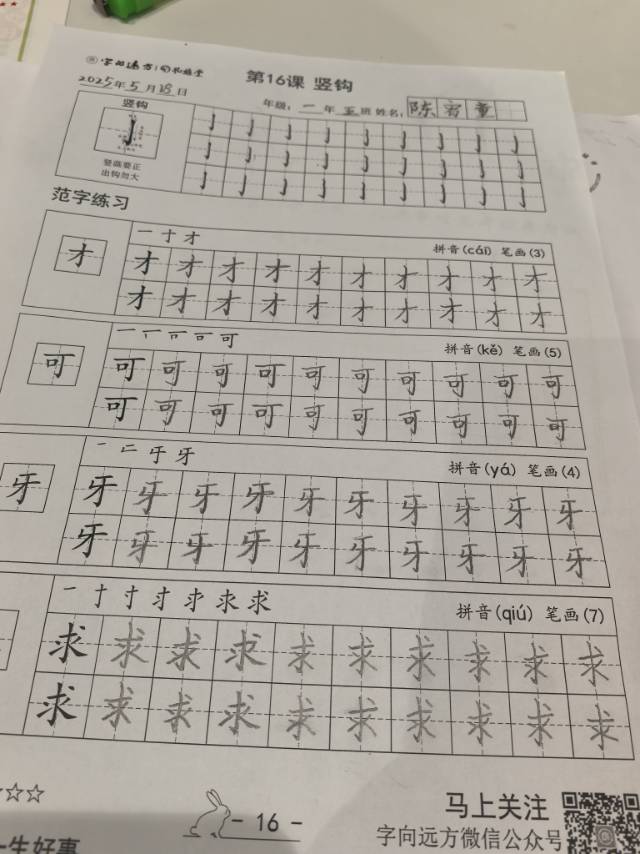 字向远方
第16课 竖钩
2025年5月18日
年级：一年五班 姓名：陈
竖钩
竖画要正
出钩勿大
亅亅亅亅亅亅亅亅亅
亅亅亅亅亅亅亅亅亅
亅亅亅亅亅亅亅亅亅
范字练习
一 十 才
拼音(cái) 笔画(3)
才
才才才才才才才才才才
才才才才才才才才才才
拼音(kě) 笔画(5)
可
可可可可可可可可可可
可可可可可可可可可可
拼音(yá) 笔画(4)
牙
牙牙牙牙牙牙牙牙牙牙
牙牙牙牙牙牙牙牙牙牙
拼音(qiú) 笔画(7)
求求求求求求求求求求
求求求求求求求求求求
- 16 -
马上关注
字向远方微信公众号
一生好事